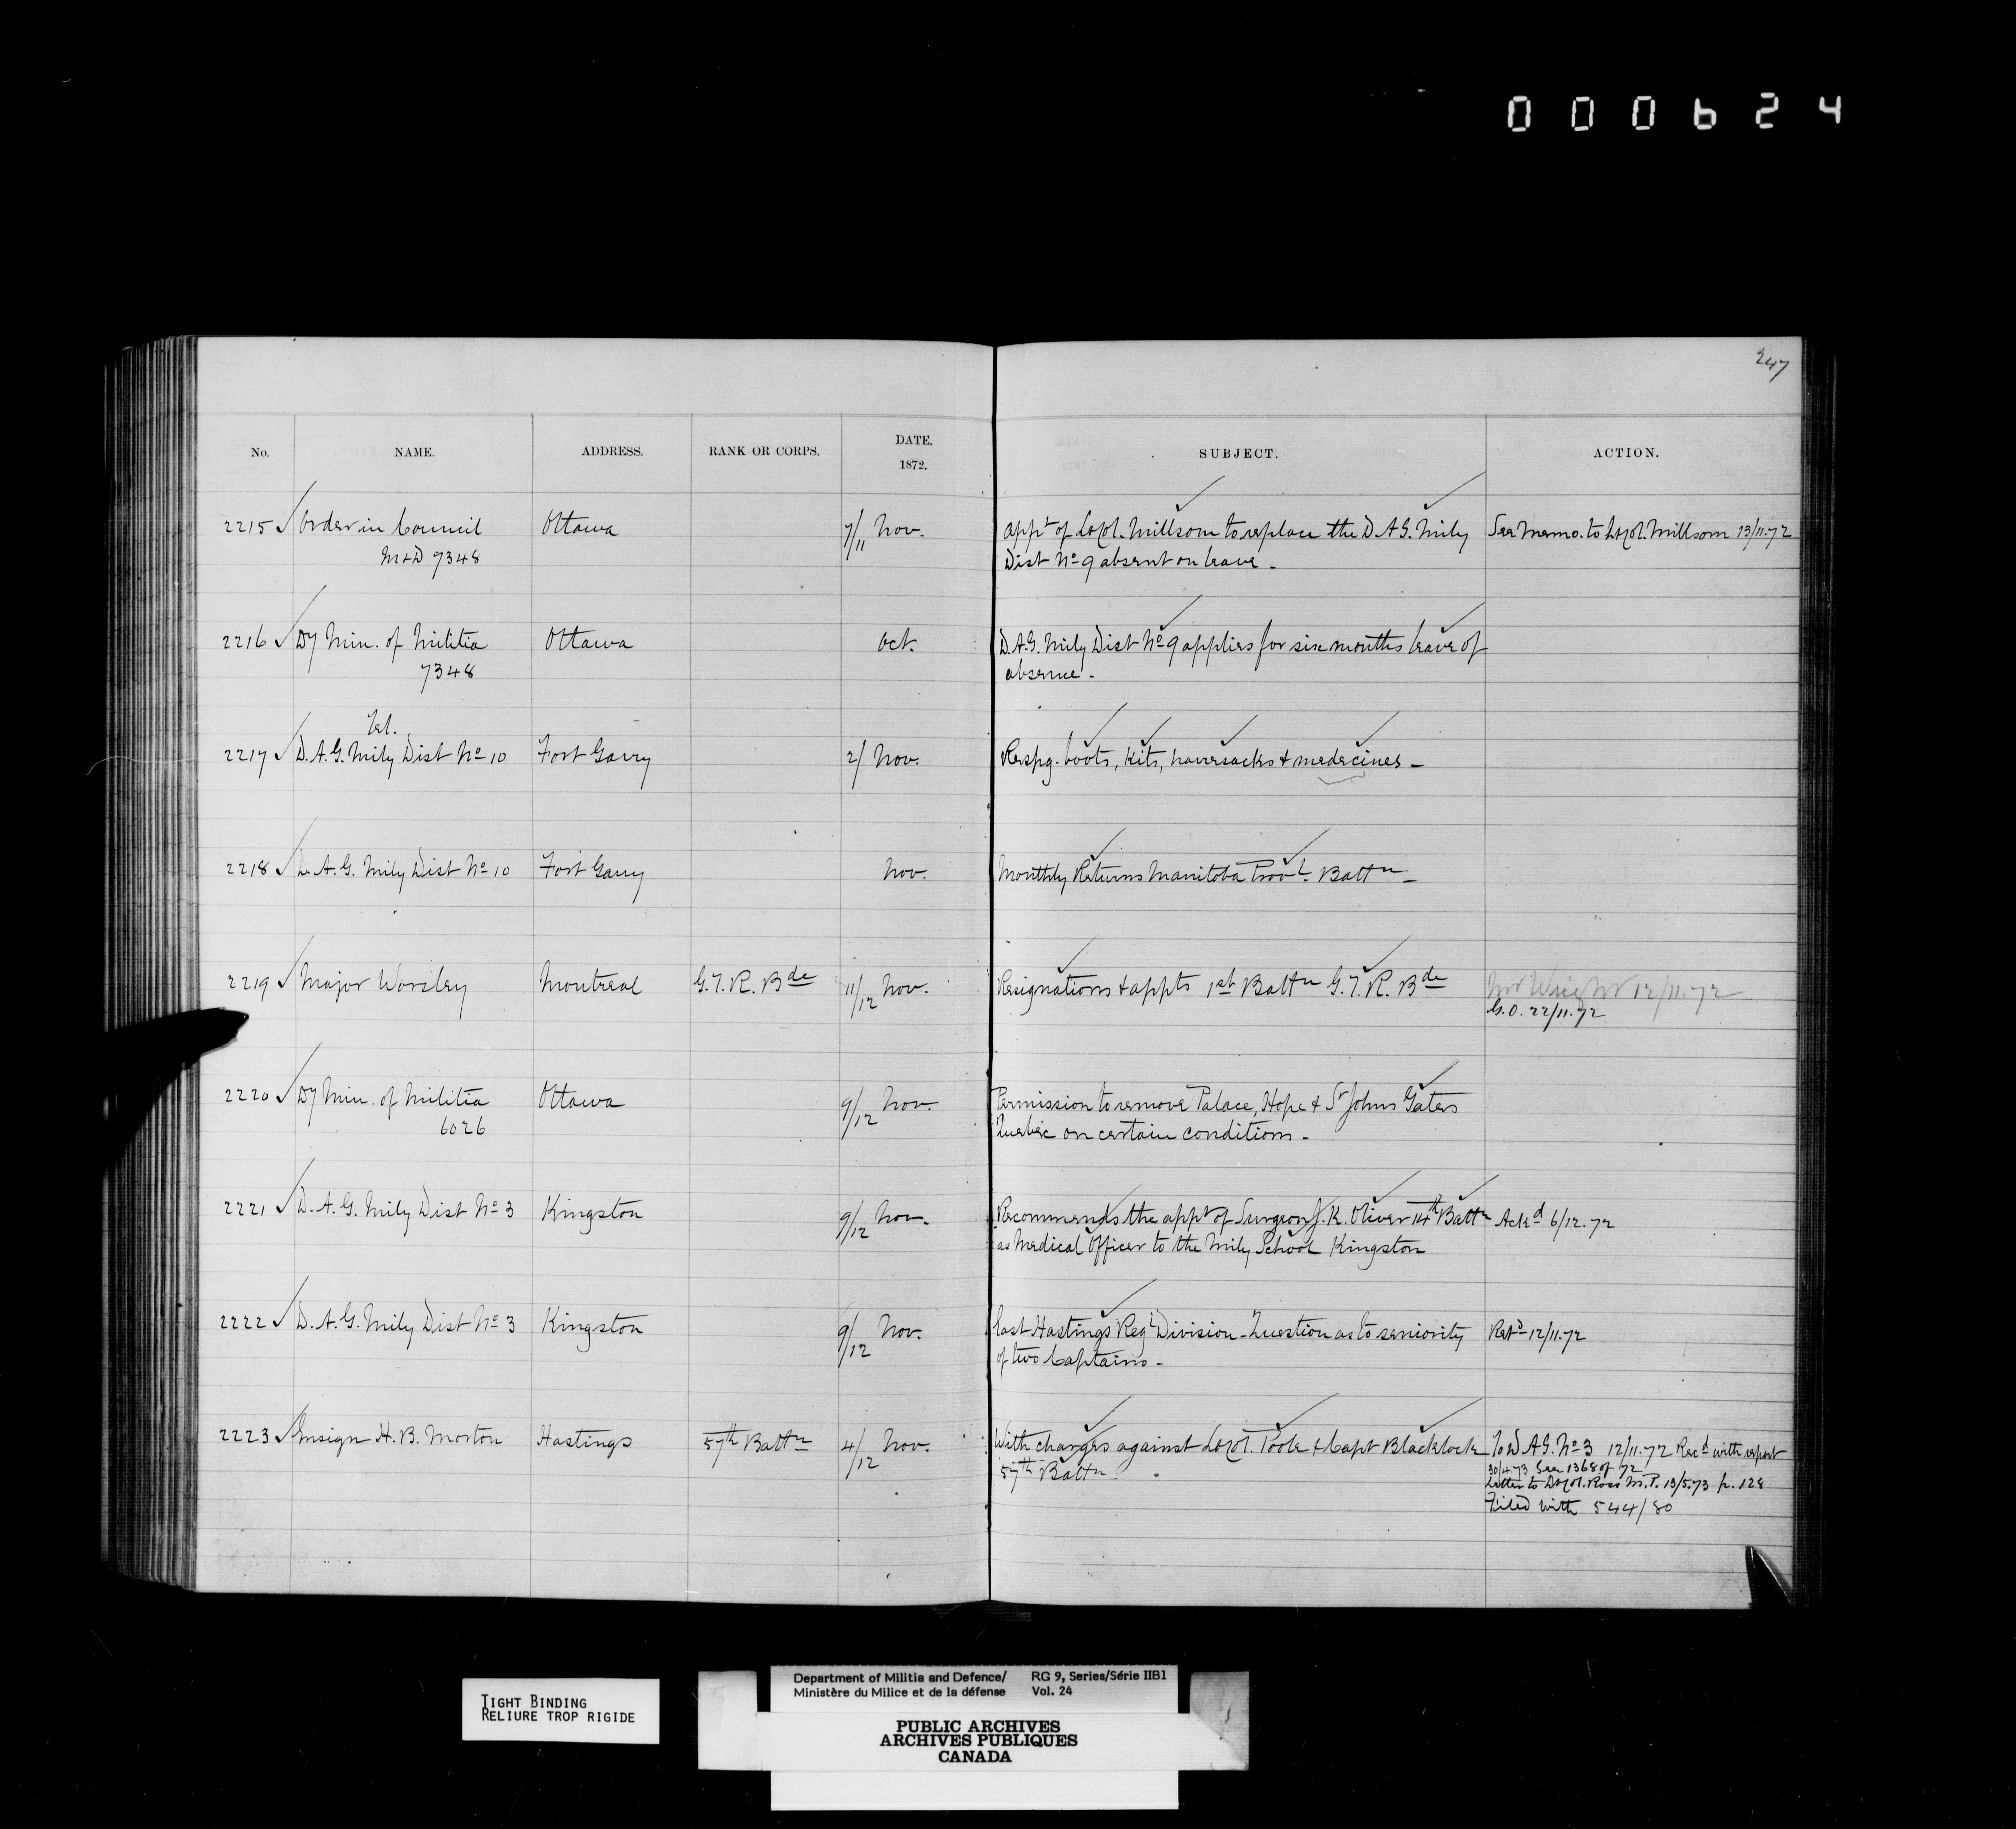 000624
247
No. NAME. ADDRESS. RANK OR CORPS. DATE. 1872. SUBJECT. ACTION.
2215 Order in Council Ottawa 7/11 Nov. Appt of Lt Col. Millsom to replace the D.A.G. Mily See memo. to Lt Col. Millsom 13/11.72
M&D 7348 Dist No 9 absent on leave.
2216 Dy Min. of Militia Ottawa Oct. D.A.G. Mily Dist No 9 applies for six months leave of
7348 absence.
Tel.
2217 D.A.G. Mily Dist No 10 Fort Garry 2/ Nov. Respg. boots, kits, haversacks & medecines
2218 D.A.G. Mily Dist No 10 Fort Garry Nov. Monthly Returns Manitoba Provl Battn
2219 Major Worsley Montreal G.T.R. Bde 11/12 Nov. Resignations & appts 1st Battn G.T.R. Bde 12/11.72
G.O. 22/11.72
2220 Dy Min. of Militia Ottawa 9/12 Nov. Permission to remove Palace, Hope & St Johns Gates
6026 Quebec on certain conditions.
2221 D.A.G. Mily Dist No 3 Kingston 9/12 Nov. Recommends the appt of Surgeon J. K. Oliver 14th Battn Ackd 6/12.72
as Medical Officer to the Mily School Kingston
2222 D.A.G. Mily Dist No 3 Kingston 9/12 Nov. East Hastings Regl Division - Question as to seniority Retd 12/11.72
of two Captains
2223 Ensign H. B. Morton Hastings 57th Battn 4/12 Nov. With charges against Lt Col. Poole & Capt Blacklock To D.A.G. No 3 12/11.72 Recd with report
57th Battn. 30/4.73 See 1368 of 72
Letter to Lt Col. Ross M.P. 13/5.73 p. 128
Filed with 544/80
TIGHT BINDING
RELIURE TROP RIGIDE
Department of Militia and Defence/ RG 9, Series/Série IIB1
Ministère du Milice et de la défense Vol. 24
PUBLIC ARCHIVES
ARCHIVES PUBLIQUES
CANADA